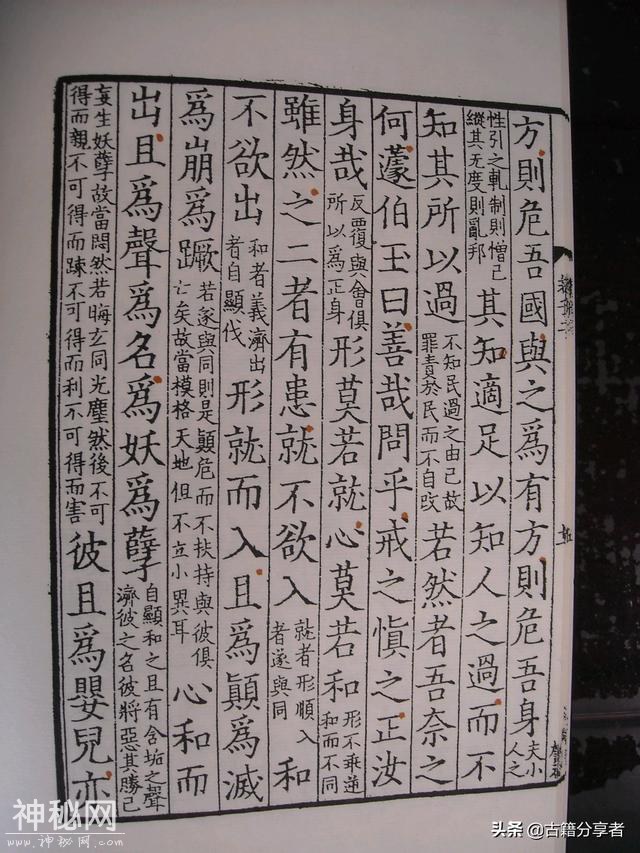 方則危吾國與之為有方則危吾身夫小人之
性引之軌制則憎己縱其无度則亂邦其知適足以知人之過而不
知其所以過不知民過之由己故罪責於民而不自攺若然者吾奈之
何蘧伯玉曰善哉問乎戒之慎之正汝
身哉反覆與會俱所以為正身形莫若就心莫若和形不乖迕和而不同
雖然之二者有患就不欲入就者形順入者遂與同和
不欲出和者義濟出者自顯伐形就而入且為顛為滅
為崩為蹶若遂與同則是顛危而不扶持與彼俱亡矣故當模格天地但不立小異耳心和而
出且為聲為名為妖為孽自顯和之且有含垢之聲濟彼之名彼將惡其勝己
妄生妖孽故當悶然若晦玄同光塵然後不可得而親不可得而踈不可得而利不可得而害彼且為嬰兒亦
神秘网
www.shenmiwang.com
头条@古籍分享者